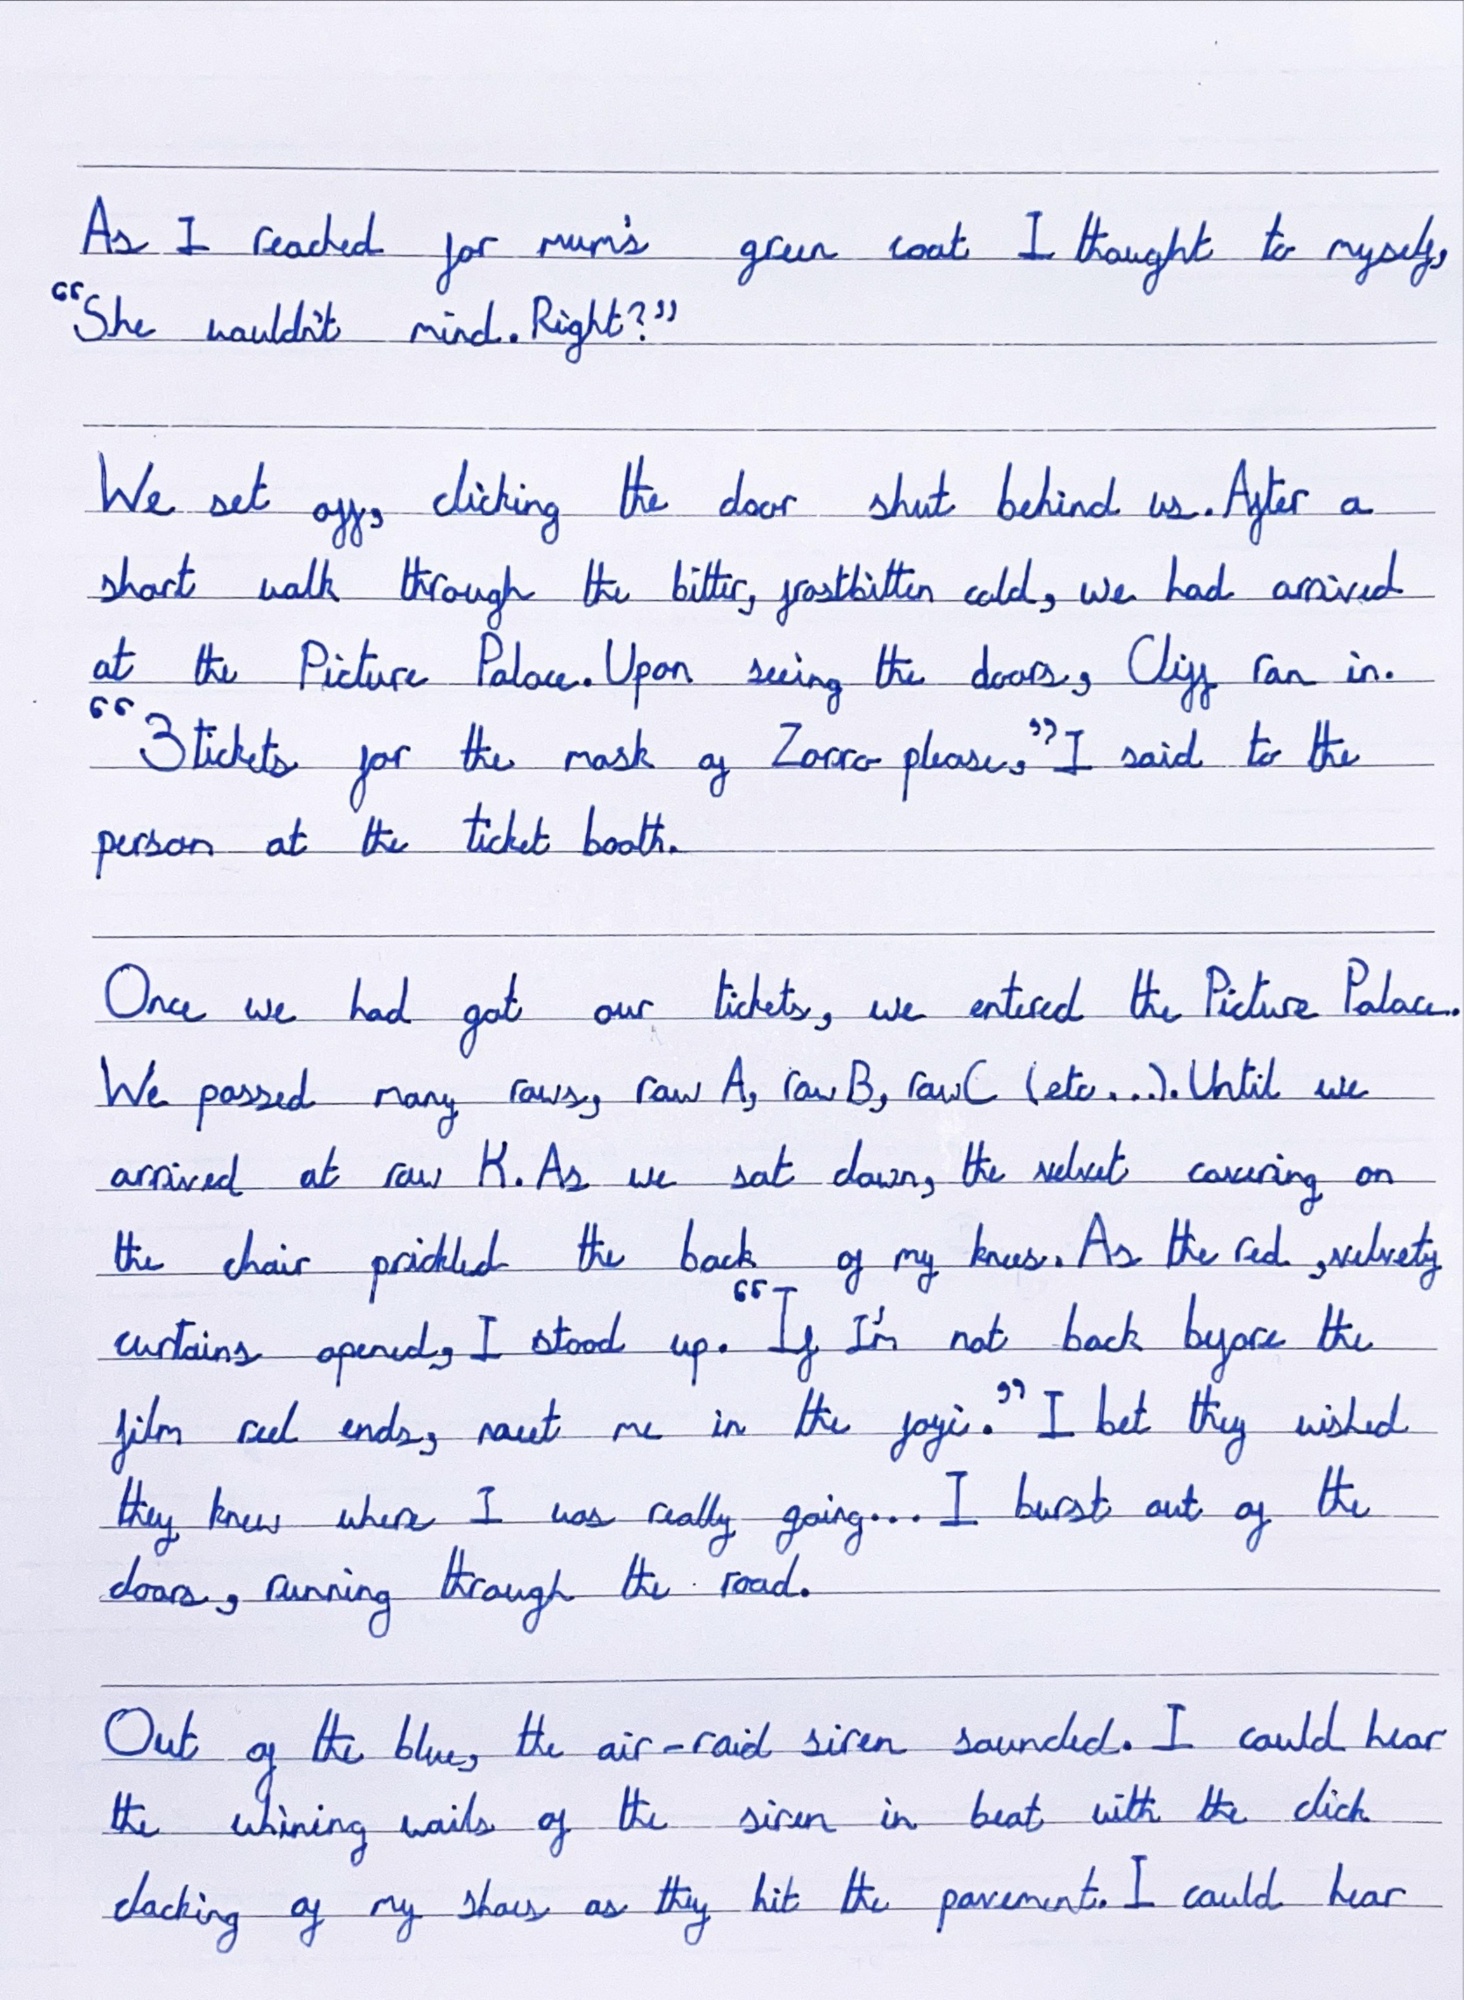 As I reached for mum's green coat I thought to myself,
"She wouldn't mind. Right?"
We set off, clicking the door shut behind us. After a
short walk through the bitter, frostbitten cold, we had arrived
at the Picture Palace. Upon seeing the doors, Cliff ran in.
"3 tickets for the mask of Zorro please," I said to the
person at the ticket booth.
Once we had got our tickets, we entered the Picture Palace.
We passed many rows, row A, row B, row C (etc...). Until we
arrived at row K. As we sat down, the velvet covering on
the chair prickled the back of my knees. As the red, velvety
curtains opened, I stood up. "If I'm not back before the
film reel ends, meet me in the foyi." I bet they wished
they knew where I was really going... I burst out of the
doors, running through the road.
Out of the blue, the air-raid siren sounded. I could hear
the whining wails of the siren in beat with the click
clacking of my shoes as they hit the pavement. I could hear